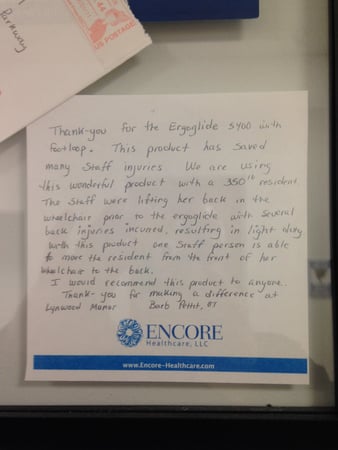 Parkway
US POSTAGE
Thank-you for the Ergoglide 5400 with
footloop. This product has saved
many staff injuries We are using
this wonderful product with a 350 lb resident.
The Staff were lifting her back in the
wheelchair prior to the ergoglide with several
back injuries incured, resulting in light duty
With this product one Staff person is able
to move the resident from the front of her
wheelchair to the back.
I would recommend this product to anyone.
Thank-you for making a difference at
Lynwood Manor Barb Pettit, OT
ENCORE
Healthcare, LLC
www.Encore-Healthcare.com